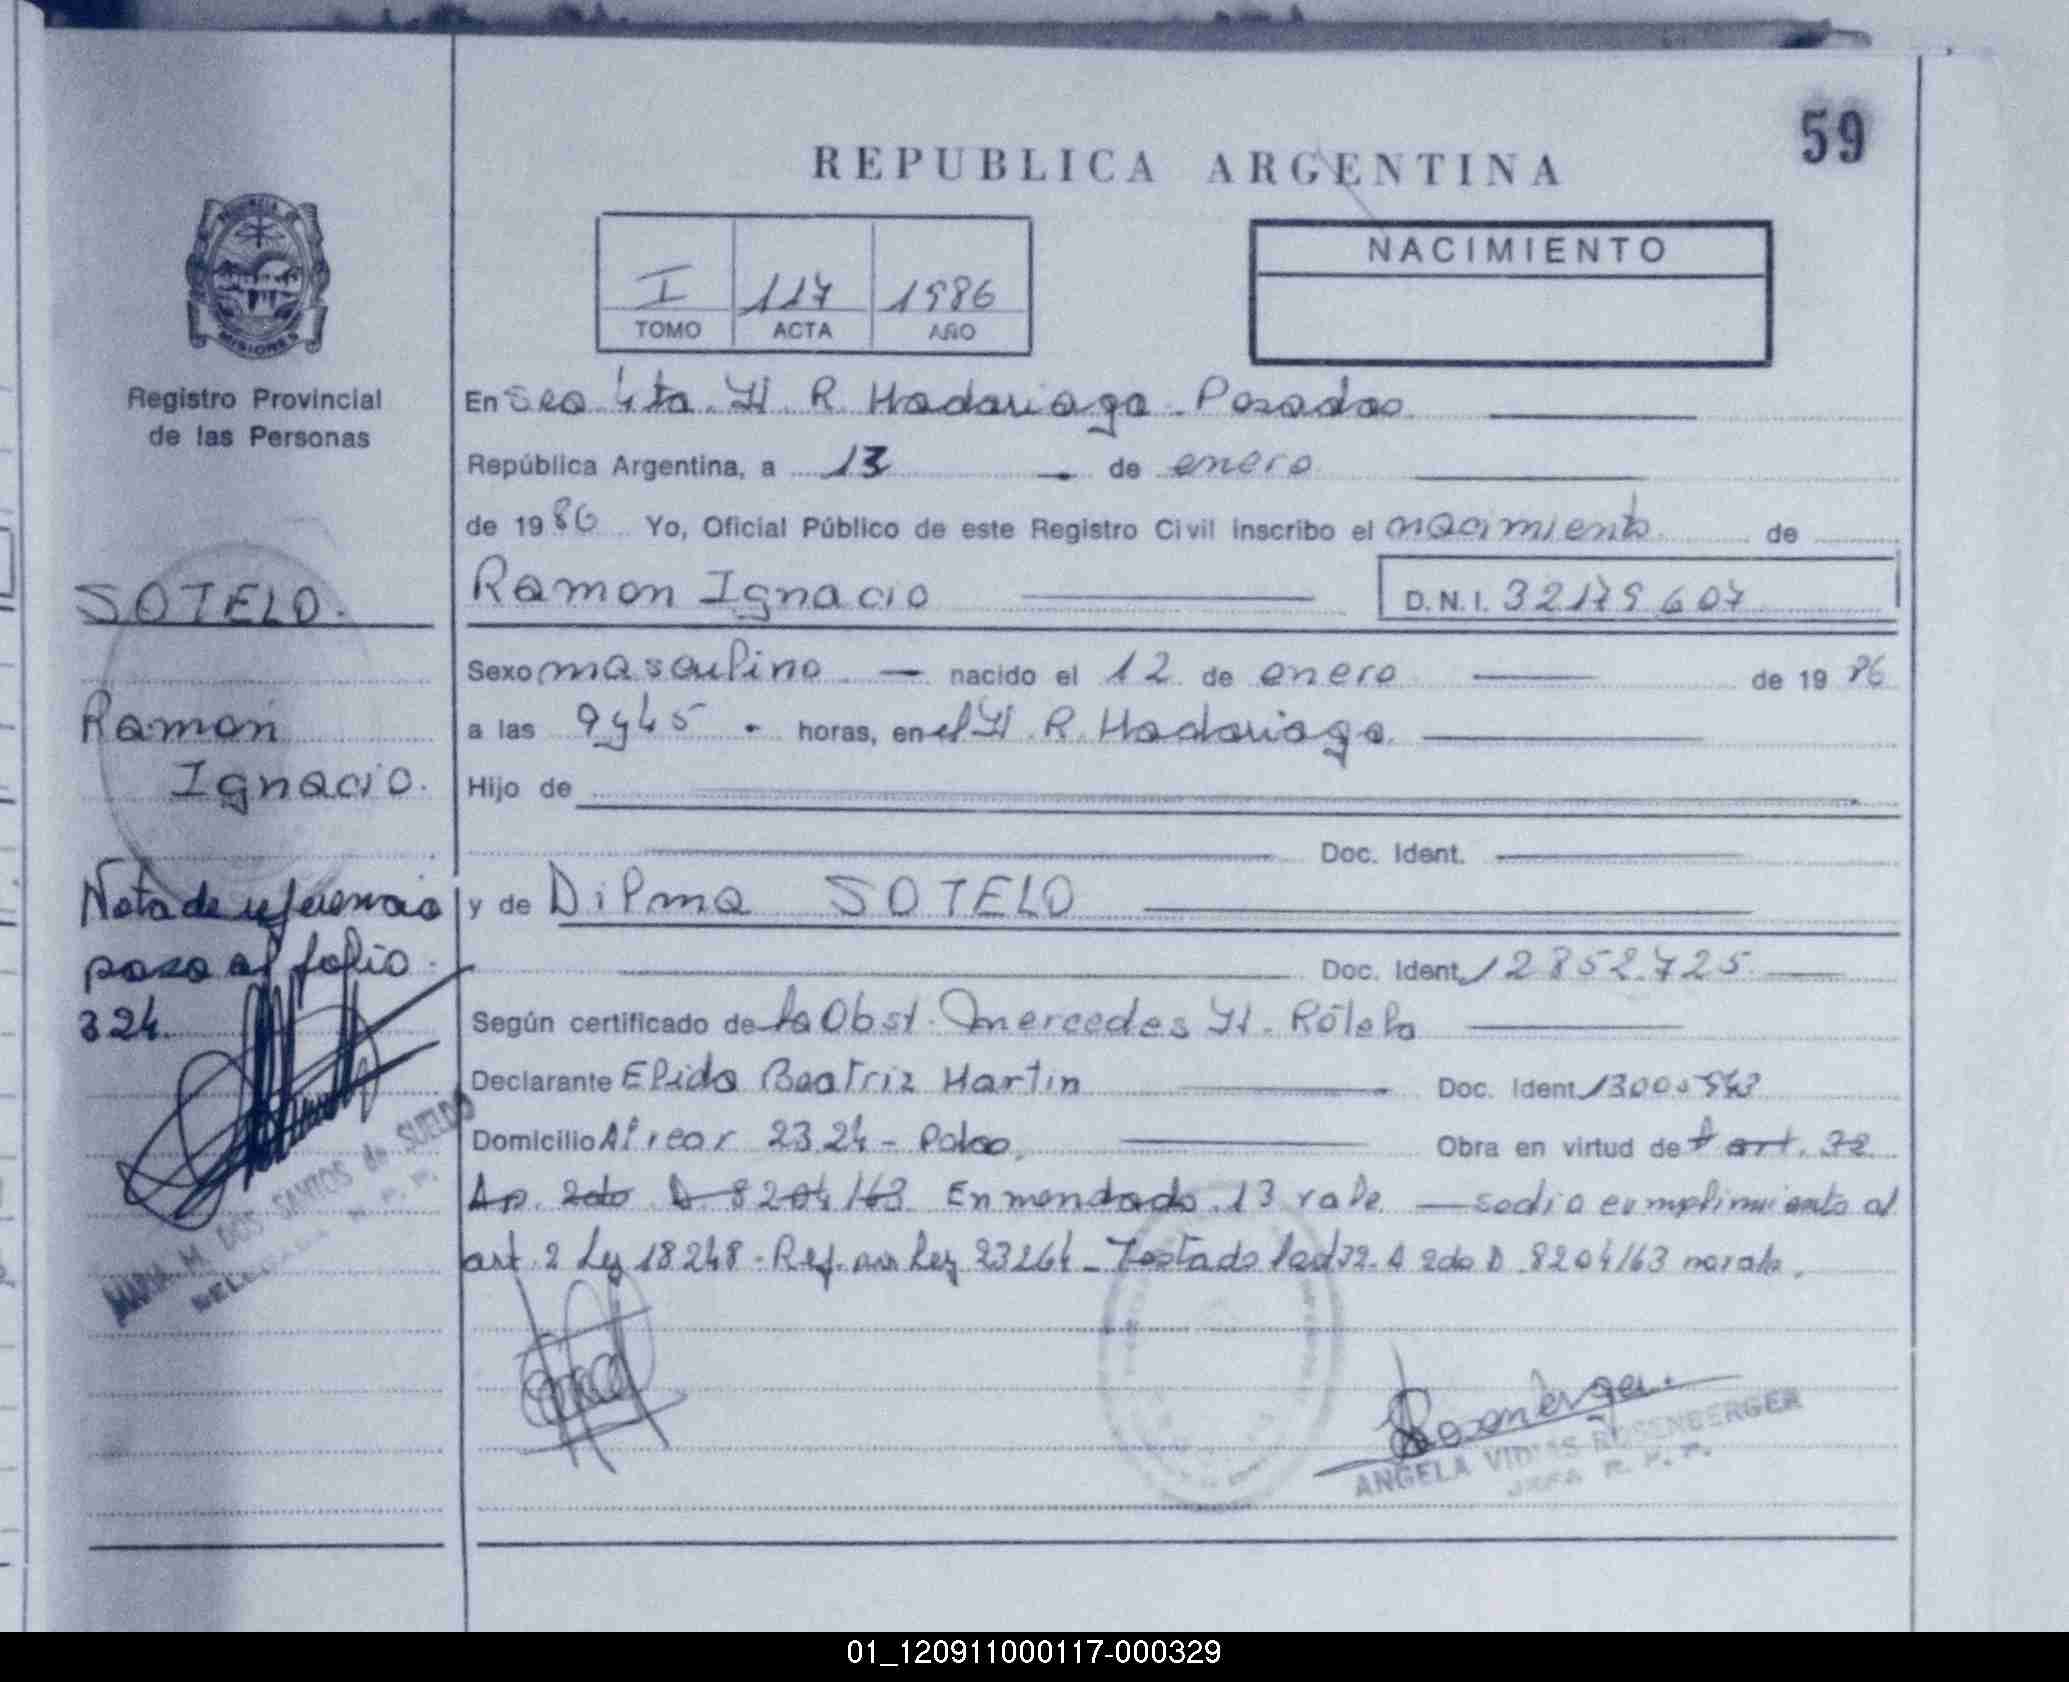 59
REPUBLICA ARGENTINA
PROVINCIA DE
MISIONES
Registro Provincial
de las Personas
I 117 1986
TOMO ACTA AÑO
NACIMIENTO
En Sec 4ta. H. R. Madariaga - Posadas
República Argentina, a 13 de enero
de 1986 Yo, Oficial Público de este Registro Civil inscribo el nacimiento de
Ramon Ignacio D.N.I. 32179607
Sexo masculino nacido el 12 de enero de 1986
a las 9y45 horas, en el H. R. Madariaga.
Hijo de
Doc. Ident.
y de Dilma SOTELO
Doc. Ident. 12852.725
Según certificado de la Obst. Mercedes H. Rólela
Declarante Elida Beatriz Martin Doc. Ident.
Domicilio Alvear 2324 - Pdas. Obra en virtud de art. 32
Ap. 2do D 8204/63 Enmendado 13 vale. se dió cumplimiento al
art. 2 Ley 18248 - Ref. por Ley 23264 - Testado 32 A 2do D 8204/63 no vale.
SOTELO.
Ramon
Ignacio.
Nota de referencia
pasa al folio
324.
MARIA M. DOS SANTOS de SUELDO
DELEGADA R. P. P.
Rosenberger
ANGELA VIDMAS ROSENBERGER
JEFA R. P. P.
01_120911000117-000329